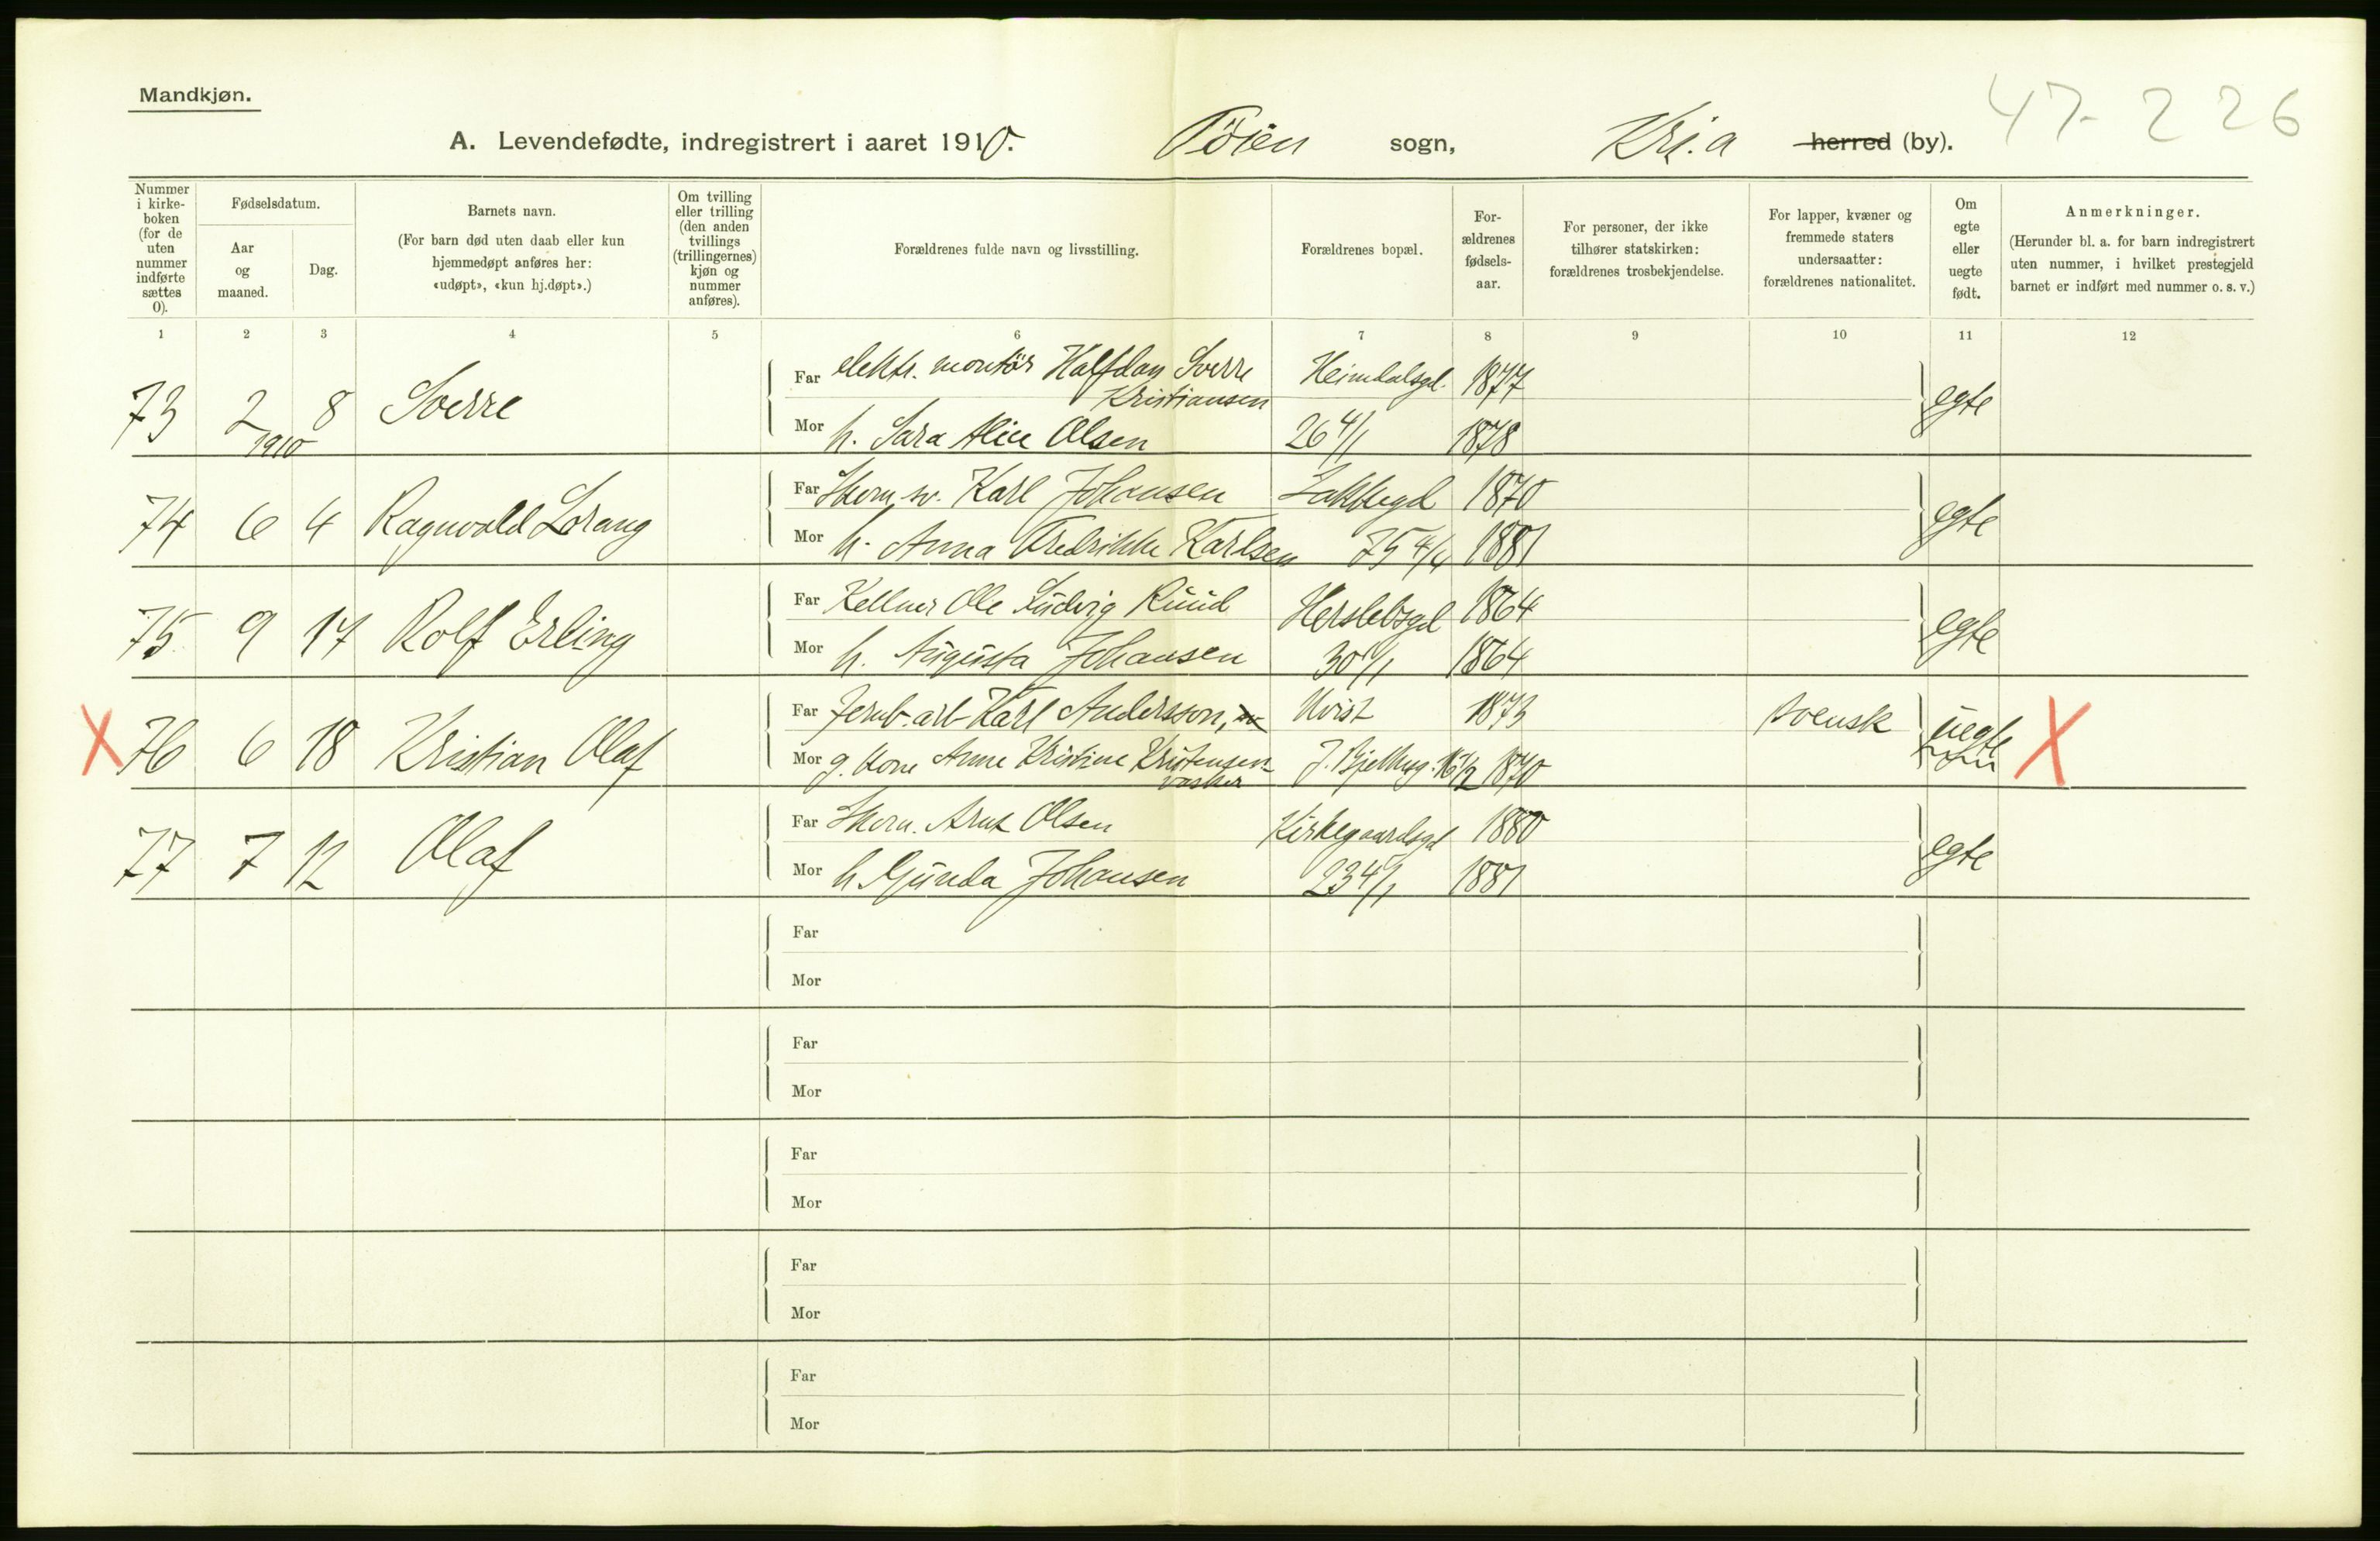 Mandkjøn.
47-226
A. Levendefødte, indregistrert i aaret 1910. Töien sogn, Kri.a herred (by).
Nummer i kirke-boken (for de uten nummer indførte sættes 0).
Fødselsdatum.
Aar og maaned.
Dag.
Barnets navn.
(For barn død uten daab eller kun hjemmedøpt anføres her: «udøpt», «kun hj.døpt».)
Om tvilling eller trilling (den anden tvillings (trillingernes) kjøn og nummer anføres).
Forældrenes fulde navn og livsstilling.
Forældrenes bopæl.
For-ældrenes fødsels-aar.
For personer, der ikke tilhører statskirken: forældrenes trosbekjendelse.
For lapper, kvæner og fremmede staters undersaatter: forældrenes nationalitet.
Om egte eller uegte født.
Anmerkninger.
(Herunder bl. a. for barn indregistrert uten nummer, i hvilket prestegjeld barnet er indført med nummer o. s. v.)
1 2 3 4 5 6 7 8 9 10 11 12
73 2 1910 8 Sverre
Far elektr. montör Halfdan Sverre Kristiansen Heimdalsgd. 1877
Mor h. Sara Alice Olsen 26 4/1 1878 egte
74 6 4 Ragnvald Lorang
Far Skom. sv. Karl Johansen Lakkegd 1870
Mor h. Anna Fredrikke Karlsen 75 4/4 1881 egte
75 9 17 Rolf Erling
Far Kellner Ole Ludvig Ruud Herslebsgd 1864
Mor h. Augusta Johansen 30 1864 egte
X 76 6 18 Kristian Olaf
Far Jernb. arb Karl Andersson, Kvist 1873 svensk uegte X
Mor g. kone Anne Kristine Kristensen vasker J. Bjelkesg. 1870
77 7 12 Olaf
Far Skom. Arnt Olsen Kirkegaardsgd 1880
Mor h Gunda Johansen 23 4/1 1881 egte
Far
Mor
Far
Mor
Far
Mor
Far
Mor
Far
Mor